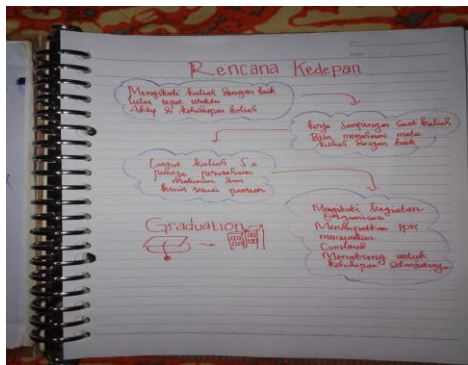 Rencana Kedepan
Mengikuti kuliah dengan baik
lulus tepat waktu
Aktif di kehidupan kuliah
Kerja Sampingan saat kuliah
Bisa mata
kuliah dengan baik
Lanjut kuliah S2
punya perusahaan
makanan dan
bisnis sesuai passion
Mengikuti kegiatan
Organisasi
Mendapatkan IPK
memuaskan
Cumlaude
Menabung untuk
kehidupan selanjutnya
Graduation